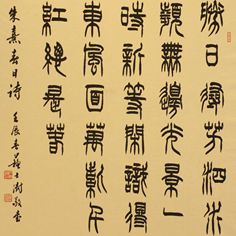 勝日尋芳泗水
濱無邊光景一
時新等閒識得
東風面萬紫千
紅總是春
朱熹春日詩 壬辰春蘇士澍敬書